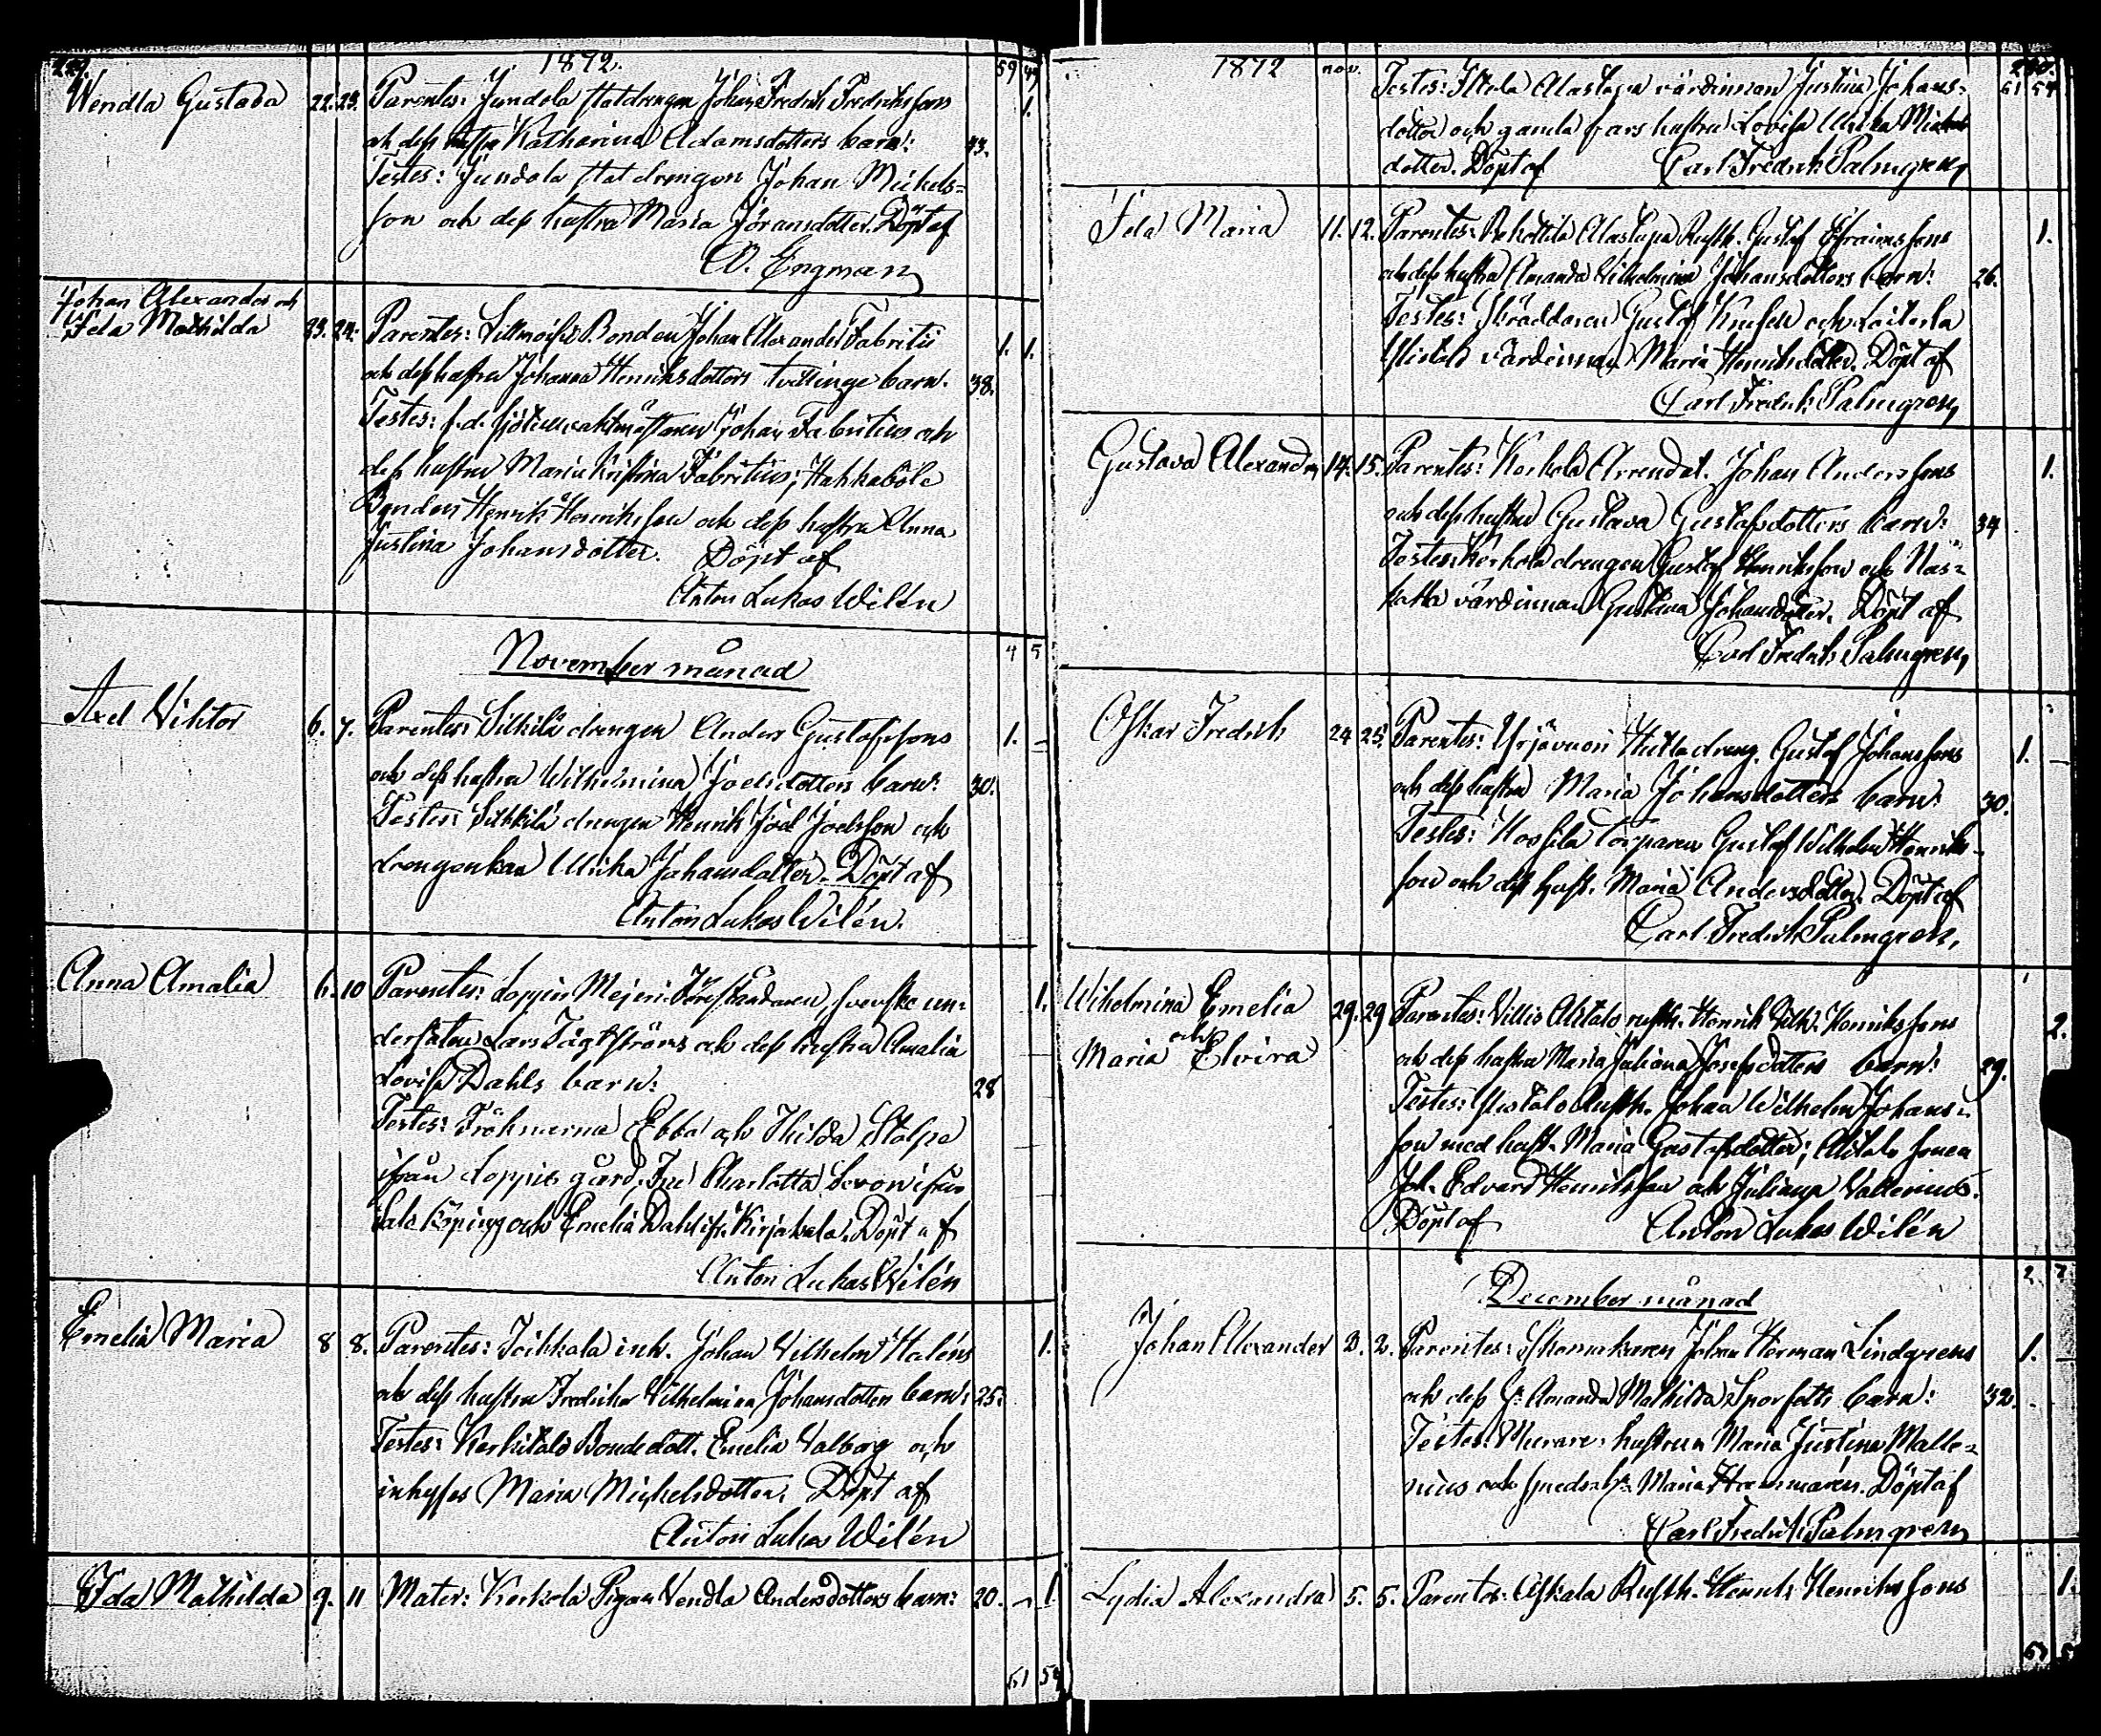 1872.
59 49
Wendla Gustava 22. 23. Parentes: Jundola statdrengen Johan Fredrik Fredrikssons 1.
och dess hustru Katharina Adamsdotters barn: 43.
Testes: Jundola statdrengen Johan Michels-
son och dess hustru Maria Göransdotter. Döpt af
Engman
Johan Alexander och
Ida Mathilda 23. 24. Parentes: Bonden Johan Alexander Fabritii 1. 1.
och dess hustru Johanna Henriksdotters tvillinge barn. 38.
Testes: f.d. Johan Fabritius och
dess hustru Maria Kristina Fabritius; Hahkaböle
Bonden Henrik Henriksson och dess hustru Anna
Justina Johansdotter. Döpt af
Anton Lukas Wilén
November månad 4 5
Axel Viktor 6. 7. Parentes: Silkkilä drengen Anders Gustafssons 1. –
och dess hustru Wilhelmina Joelsdotters barn: 30.
Testes: Silkkilä drengen Henrik Joel Joelsson och
drengenkan Ulrika Johansdotter. Döpt af
Anton Lukas Wilén.
Anna Amalia 6. 10 Parentes: Loppis Mejeri Föreståndaren, svenske un- 1.
dersåten Lars Tägtströms och dess hustru Amalia
Lovisa Dahls barn: 28
Testes: Fröknarna Ebba och Hilda Stolpe
ifrån Loppis gård, Charlotta Levon ifrån
Salo Köping och Emelia Dahl ifr. Kirjakkala. Döpt af
Anton Lukas Wilén
Emelia Maria 8 8. Parentes: Toikkala inh. Johan Vilhelm Haléns 1.
och dess hustru Fredrika Vilhelmina Johansdotters barn: 25.
Testes: Kerkitalo Bondedott. Emelia Valborg och
inhyses Maria Michelsdotter. Döpt af
Anton Lukas Wilén
Ida Mathilda 9. 11 Mater: Kerkola Pigan Vendla Andersdotters barn: 20. – 1
51 54
1872 nov. 240.
Testes: Alastupa värdinnan Justina Johans- 51 54
dotter och gamla hustru Lovisa Ulrika Michels
dotter. Döpt af Carl Fredrik Palmgren
Ida Maria 11. 12. Parentes: Rekottila Alastupa Rusth. Gustaf Efraimssons 1.
och dess hustru Amanda Vilhelmina Johansdotters barn: 26.
Testes: Skräddaren Gustaf och
värdinnan Maria Henriksdotter. Döpt af
Carl Fredrik Palmgren
Gustava Alexandra 14. 15. Parentes: Kerkola Arrendat. Johan Anderssons 1.
och dess hustru Gustava Gustafsdotters barn: 34
Testes: Kerkola drengen Gustaf Henriksson och Näs-
värdinnan Gustava Johansdotter. Döpt af
Carl Fredrik Palmgren
Oskar Fredrik 24 25. Parentes: Yrjävuori Gustaf Johanssons 1. –
och dess hustru Maria Johansdotters barn: 30.
Testes: torparen Gustaf Wilhelm Henriks-
son och dess hust. Maria Andersdotter. Döpt af
Carl Fredrik Palmgren,
Wilhelmina Emelia
och
Maria Elvira 29. 29 Parentes: Villis Alitalo rusth. Henrik Vilh. Henrikssons 2.
och dess hustru Maria Juliana Josefsdotters barn: 29.
Testes: Ylistalo Rusth. Johan Wilhelm Johans-
son med hust. Maria Gustafsdotter; Alitalo sonen
Joh. Edvard Henriksson och Juliana Vallenius.
Döpt af Anton Lukas Wilén
December månad 2 7
Johan Alexander 2. 2. Parentes: Skomakaren Johan Herman Lindgrens 1. –
och dess h: Amanda Mathilda barn: 32.
Testes: Murare hustrun Maria Justina Malle-
nius och Maria Döpt af
Carl Fredrik Palmgren
Lydia Alexandra 5. 5. Parentes: Rusth. Henrik Henrikssons 1.